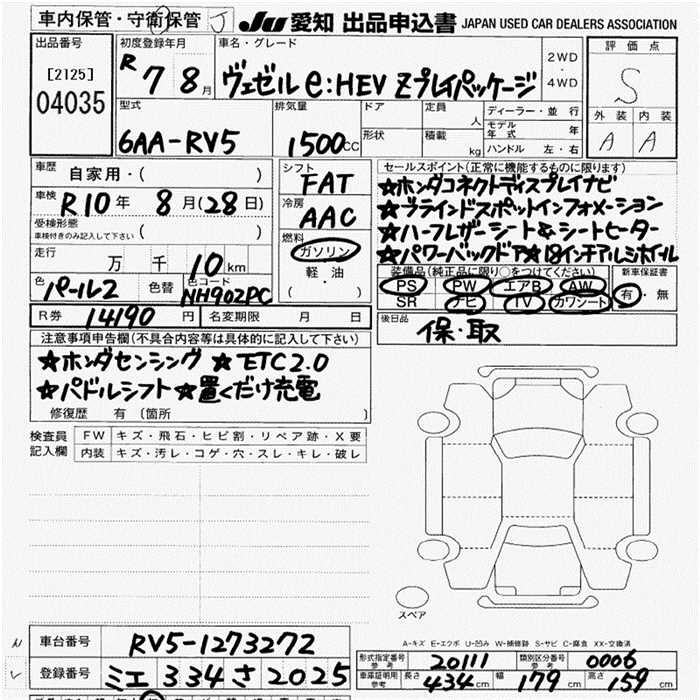 車内保管・守衛保管 J
JU 愛知 出品申込書 JAPAN USED CAR DEALERS ASSOCIATION
出品番号
[2125]
04035
初度登録年月
R 7 8月
車名・グレード
ヴェゼル e:HEV Zプレイパッケージ
2WD
・
4WD
評価点
S
外装 内装
A A
型式
6AA-RV5
排気量
1500cc
ドア
形状
定員 人
積載 kg
ディーラー・並行
モデル年式 年
ハンドル 左・右
車歴
自家用・( )
車検
R10年 8月(28日)
受検形態
車検付きのみ記入して下さい ( )
走行
万 千 10km
色 パール2 色替 色コード NH902PC
シフト
FAT
冷房
AAC
燃料
ガソリン
軽・油
( )
セールスポイント(正常に機能するものに限ります)
★ホンダコネクトディスプレイナビ
★ブラインドスポットインフォメーション
★ハーフレザーシート&シートヒーター
★パワーバックドア★18インチアルミホイル
装備品(純正品に限り○をつけてください)
PS PW エアB AW
SR ナビ TV カワシート
新車保証書
有・無
R券 14190円 名変期限 月 日
後日品
保・取
注意事項申告欄(不具合内容等は具体的に記入して下さい)
★ホンダセンシング ★ETC2.0
★パドルシフト★置くだけ充電
修復歴 有〔箇所 〕
検査員記入欄
FW キズ・飛石・ヒビ割・リペア跡・X要
内装 キズ・汚レ・コゲ・穴・スレ・キレ・破レ
スペア
A-キズ E-エクボ U-凹み W-補修跡 S-サビ C-腐食 XX-交換済
車台番号 RV5-1273272
登録番号 ミエ 334 さ 2025
形式指定番号 参考 20111 類別区分番号 参考 0006
車庫証明用 参考 長さ 434cm 幅 179cm 高さ 159cm